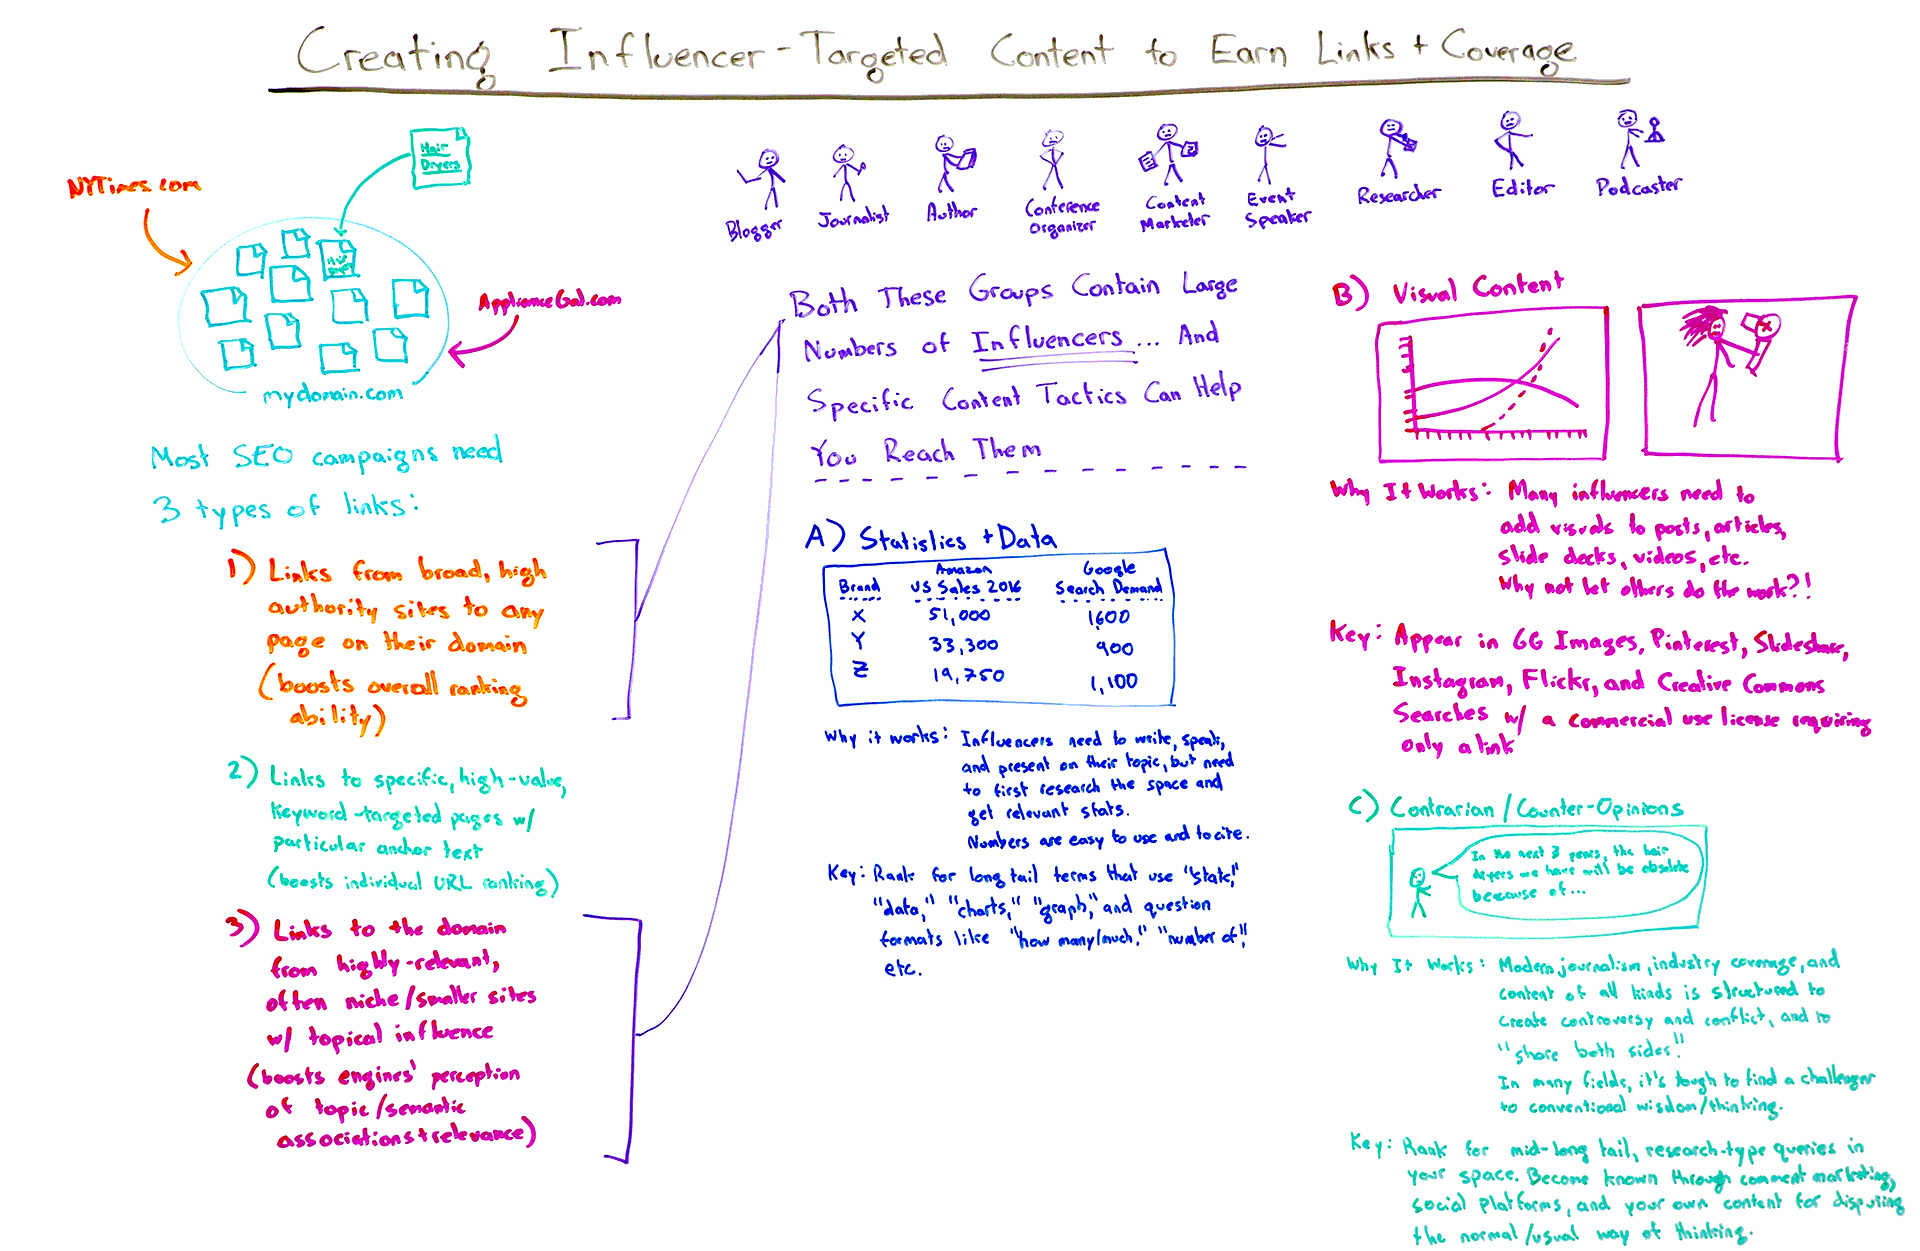 Creating Influencer-Targeted Content to Earn Links + Coverage
NYTimes.com
Hair
Dryers
ApplianceGal.com
mydomain.com
Most SEO campaigns need
3 types of links:
1) Links from broad, high
authority sites to any
page on their domain
(boosts overall ranking
ability)
2) Links to specific, high-value,
keyword-targeted pages w/
particular anchor text
(boosts individual URL ranking)
3) Links to the domain
from highly-relevant,
often niche/smaller sites
w/ topical influence
(boosts engines' perception
of topic/semantic
associations + relevance)
Blogger
Journalist
Author
Conference
Organizer
Content
Marketer
Event
Speaker
Researcher
Editor
Podcaster
Both These Groups Contain Large
Numbers of Influencers... And
Specific Content Tactics Can Help
You Reach Them
A) Statistics + Data
Brand Amazon US Sales 2016 Google Search Demand
X 51,000 1600
Y 33,300 900
Z 19,750 1,100
Why it works: Influencers need to write, speak,
and present on their topic, but need
to first research the space and
get relevant stats.
Numbers are easy to use and to cite.
Key: Rank for long tail terms that use "stats,"
"data," "charts," "graph," and question
formats like "how many/much," "number of,"
etc.
B) Visual Content
Why It Works: Many influencers need to
add visuals to posts, articles,
slide decks, videos, etc.
Why not let others do the work?!
Key: Appear in GG Images, Pinterest, Slideshare,
Instagram, Flickr, and Creative Commons
Searches w/ a commercial use license requiring
only a link
C) Contrarian/Counter-Opinions
In the next 3 years, the hair
dryers we have will be obsolete
because of...
Why It Works: Modern journalism, industry coverage, and
content of all kinds is structured to
create controversy and conflict, and to
"share both sides."
In many fields, it's tough to find a challenger
to conventional wisdom/thinking.
Key: Rank for mid-long tail, research-type queries in
your space. Become known through comment marketing,
social platforms, and your own content for disputing
the normal/usual way of thinking.